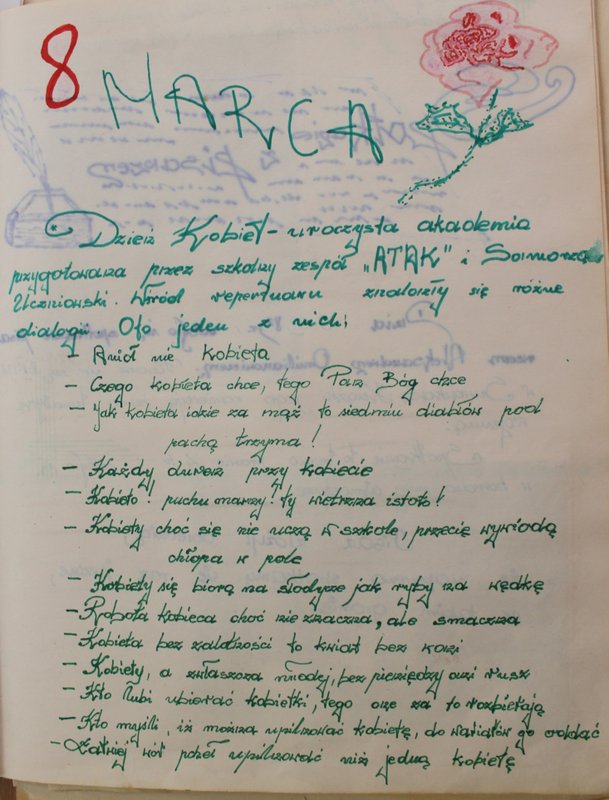 8 MARCA
Dzień Kobiet - uroczysta akademia
przygotowana przez szkolny zespół „ATAK" i Samorząd
Uczniowski. Wśród repertuaru znalazły się różne
dialogi. Oto jeden z nich:
- Anioł nie kobieta
- Czego kobieta chce, tego Pan Bóg chce
- Jak kobieta idzie za mąż to siedmiu diabłów pod
pachą trzyma!
- Każdy dureń przy kobiecie
- Kobieto! puchu marny! ty wietrzna istoto!
- Kobiety choć się nie uczą w szkole, przecię wywiodą
chłopa w pole
- Kobiety się biorą na słodycze jak ryby na wędkę
- Robota kobieca choć nie znaczna, ale smaczna
- Kobieta bez zalotności to kwiat bez woni
- Kobiety, a zwłaszcza młodej, bez pieniędzy ani rusz
- Kto lubi ubierać kobietki, tego one za to rozbierają
- Kto myśli, iż można upilnować kobietę, do wariatów go oddać
- Łatwiej wór pcheł upilnować niż jedną kobietę